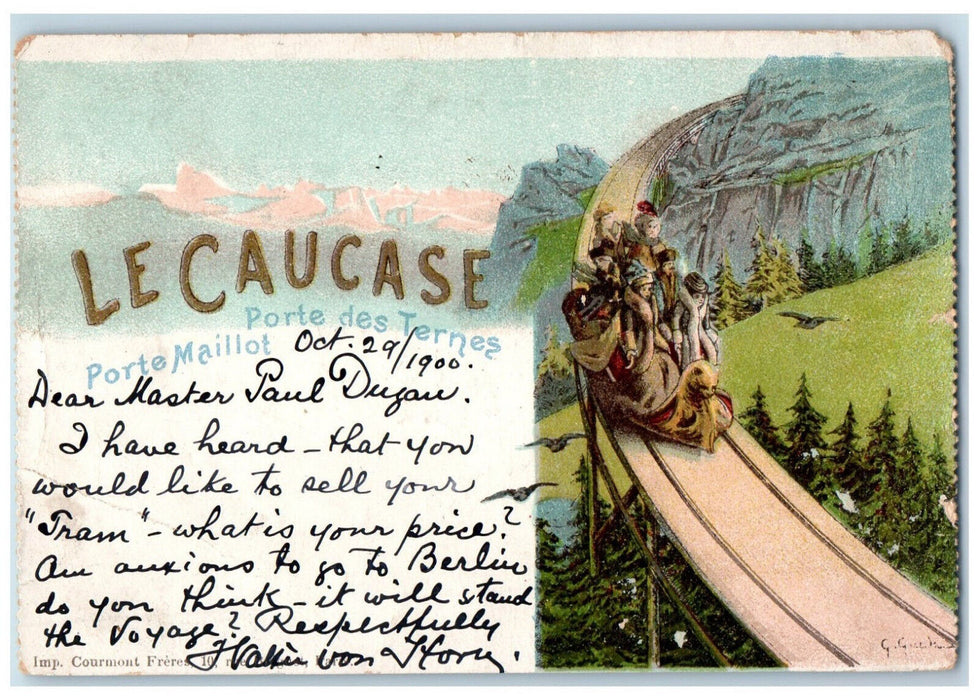 LE CAUCASE
Porte des Ternes
Porte Maillot
Oct. 29/1900.
Dear Master Paul Dugan.
I have heard - that you
would like to sell your
"Tram" - what is your price?
Am anxious to go to Berlin
do you think - it will stand
the Voyage? Respectfully
Hattie von Horn.
Imp. Courmont Frères, 10,